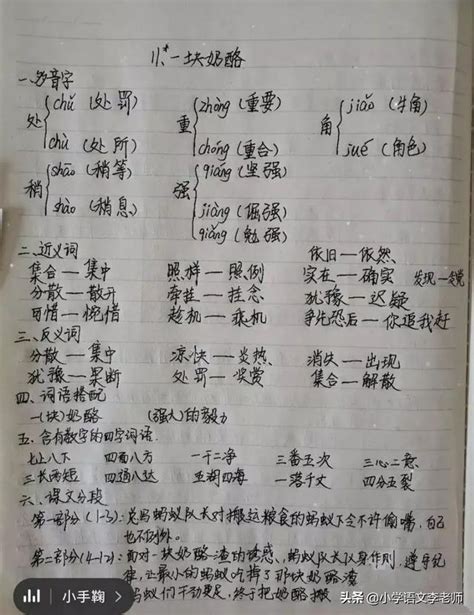 11.*一块奶酪
一.多音字
处 chǔ (处罚) 重 zhòng (重要) 角 jiǎo (牛角)
chù (处所) chóng (重合) jué (角色)
稍 shāo (稍等) 强 qiáng (坚强)
shào (稍息) jiàng (倔强)
qiǎng (勉强)
二、近义词 依旧—依然
集合—集中 照样—照例 实在—确实 发现—发觉
分散—散开 牵挂—挂念 犹豫—迟疑
可惜—惋惜 趁机—乘机 争先恐后—你追我赶
三、反义词
分散—集中 凉快—炎热 消失—出现
犹豫—果断 处罚—奖赏 集合—解散
四、词语搭配
一(块)奶酪 (强大)的毅力
五、含有数字的四字词语
七上八下 四面八方 一干二净 三番五次 三心二意
三长两短 四通八达 五湖四海 一落千丈 四分五裂
六、课文分段
第一部分(1-3):蚂蚁队长对搬运粮食的蚂蚁下令不许偷嘴,自己
也不例外。
第二部分(4-12):面对一块奶酪渣的诱惑,蚂蚁队长以身作则,遵守纪
律,让最小的蚂蚁吃掉了那块奶酪渣
蚂蚁们干劲更足,终于把奶酪搬
小手鞠
头条 @小学语文李老师